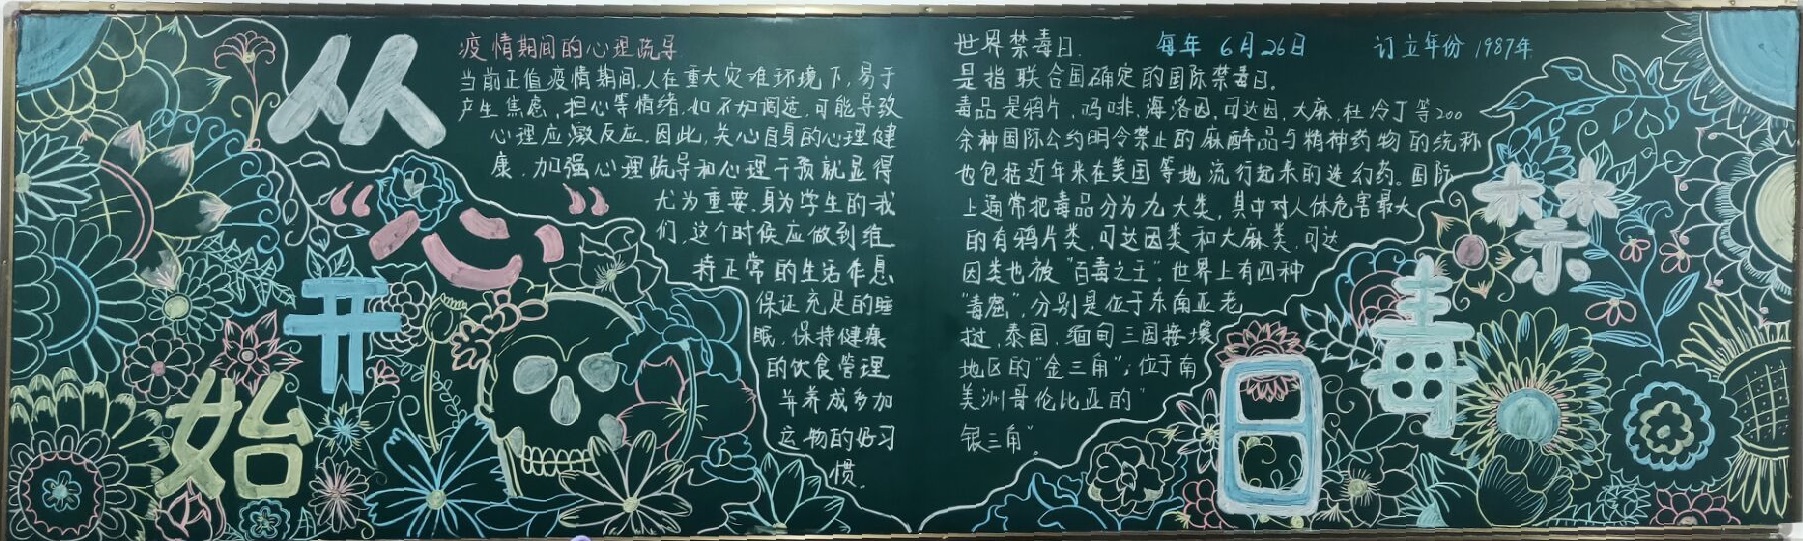 从“心”开始
疫情期间的心理疏导
当前正值疫情期间,人在重大灾难环境下,易于
产生焦虑,担心等情绪,如不加阔远,可能导致
心理应激反应,因此,关心自身的心理健
康,加强心理疏导和心理干预就显得
尤为重要,身为学生的我
们,这个时候应做到维
持正常的生活作息
保证充足的睡
眠,保持健康
的饮食管理
并养成多加
运物的好习
惯。
世界禁毒日. 每年 6月26日 订立年份 1987年
是指联合国确定的国际禁毒日。
毒品是鸦片,吗啡,海洛因,可达因,大麻,杜冷丁等200
余种国际公约明令禁止的麻醉品与精神药物的统称
也包括近年来在美国等地流行起来的迷幻药。国际
上通常把毒品分为九大类,其中对人体危害最大
的有鸦片类,可达因类和大麻类,可达
因类也被“百毒之王”世界上有四种
“毒窟”,分别是位于东南亚老
挝,泰国,缅甸三国接壤
地区的“金三角”;位于南
美洲哥伦比亚的“
银三角”。
禁毒日